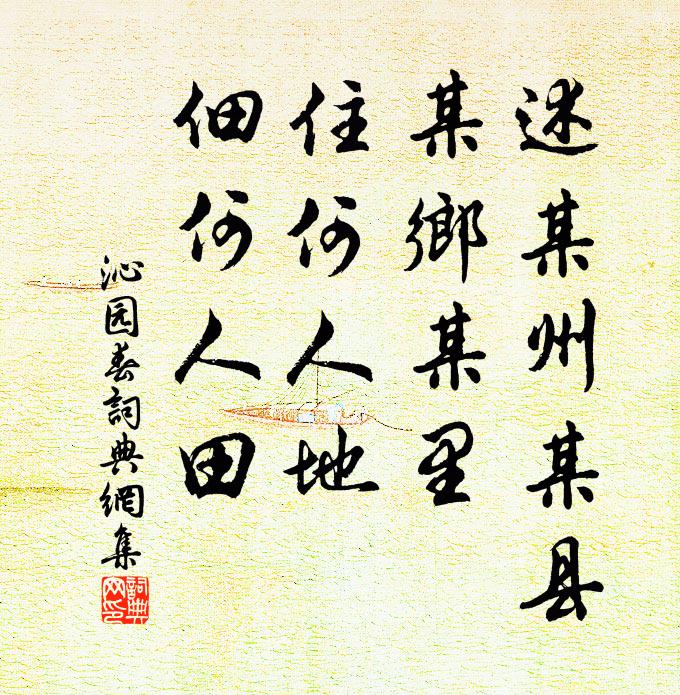 述某州某县
某鄉某里
住何人地
佃何人田
沁园春詞典網集
詞典
网印